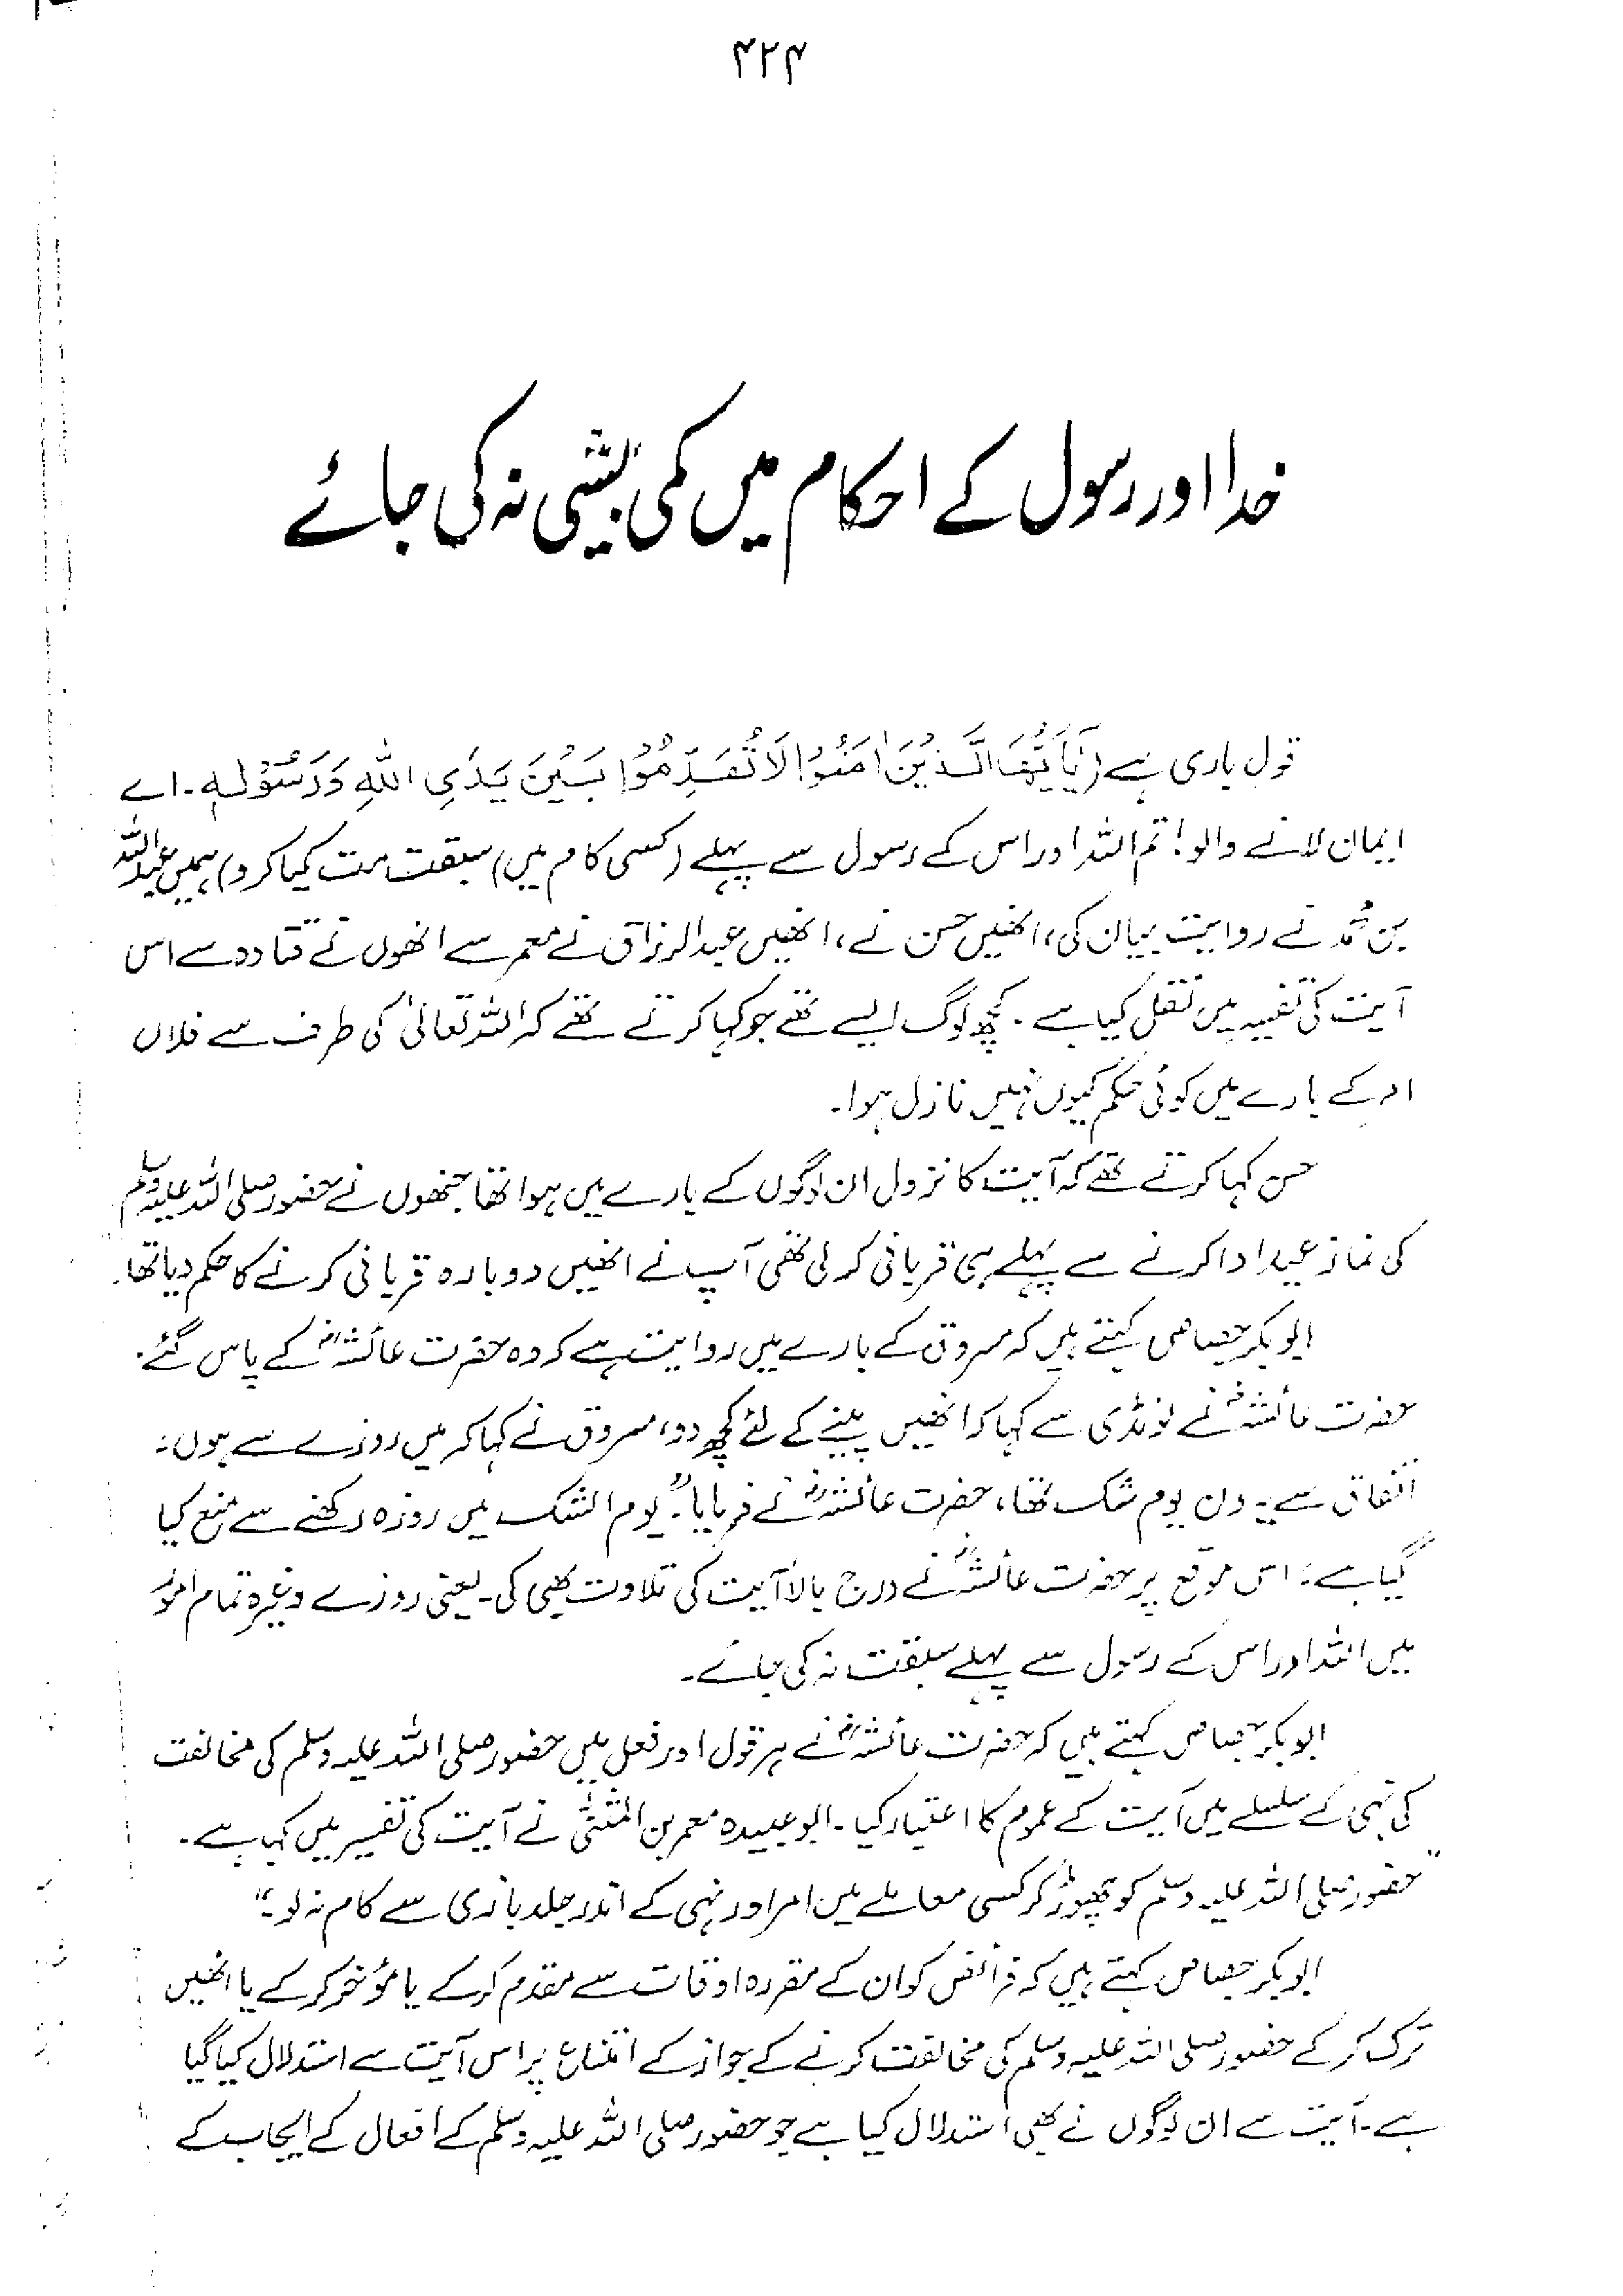 ۴۲۴
خدا اور رسول کے احکام میں کمی بیشی نہ کی جائے
قول باری ہے (یٰۤاَیُّھَا الَّذِیْنَ اٰمَنُوْا لَا تُقَدِّمُوْا بَیْنَ یَدَیِ اللّٰہِ وَرَسُوْلِہٖ۔ اے
ایمان لانے والو! تم اللہ اور اس کے رسول سے پہلے (کسی کام میں) سبقت مت کیا کرو) ہمیں عبداللہ
بن محمد نے روایت بیان کی، انھیں حسن نے، انھیں عبدالرزاق نے معمر سے انھوں نے قتادہ سے اس
آیت کی تفسیر میں نقل کیا ہے۔ کچھ لوگ ایسے تھے جو کہا کرتے تھے کہ اللہ تعالیٰ کی طرف سے فلاں
امر کے بارے میں کوئی حکم کیوں نہیں نازل ہوا۔
حسن کہا کرتے تھے کہ آیت کا نزول ان لوگوں کے بارے میں ہوا تھا جنھوں نے حضور صلی اللہ علیہ وسلم
کی نماز عید ادا کرنے سے پہلے ہی قربانی کرلی تھی آپ نے انھیں دوبارہ قربانی کرنے کا حکم دیا تھا۔
ابوبکر جصاص کہتے ہیں کہ مسروق کے بارے میں روایت ہے کہ وہ حضرت عائشہؓ کے پاس گئے۔
حضرت عائشہؓ نے لونڈی سے کہا کہ انھیں پینے کے لئے کچھ دو، مسروق نے کہا کہ میں روزے سے ہوں:
اتفاق سے یہ دن یوم شک تھا، حضرت عائشہؓ نے فرمایا: "یوم الشک میں روزہ رکھنے سے منع کیا
گیا ہے: اس موقع پر حضرت عائشہؓ نے درج بالا آیت کی تلاوت بھی کی۔ یعنی روزے وغیرہ تمام امور
میں اللہ اور اس کے رسول سے پہلے سبقت نہ کی جائے۔
ابوبکر جصاص کہتے ہیں کہ حضرت عائشہؓ نے ہر قول اور فعل میں حضور صلی اللہ علیہ وسلم کی مخالفت
کی نہی کے سلسلے میں آیت کے عموم کا اعتبار کیا۔ ابو عبیدہ معمر بن المثنیٰ نے آیت کی تفسیر میں کہا ہے۔
"حضور صلی اللہ علیہ وسلم کو چھوڑ کر کسی معاملے میں امر اور نہی کے اندر جلد بازی سے کام نہ لو۔"
ابوبکر جصاص کہتے ہیں کہ فرائض کو ان کے مقررہ اوقات سے مقدم کرکے یا مؤخر کرکے یا انھیں
ترک کرکے حضور صلی اللہ علیہ وسلم کی مخالفت کرنے کے جواز کے امتناع پر اس آیت سے استدلال کیا گیا
ہے۔ آیت سے ان لوگوں نے بھی استدلال کیا ہے جو حضور صلی اللہ علیہ وسلم کے افعال کے ایجاب کے